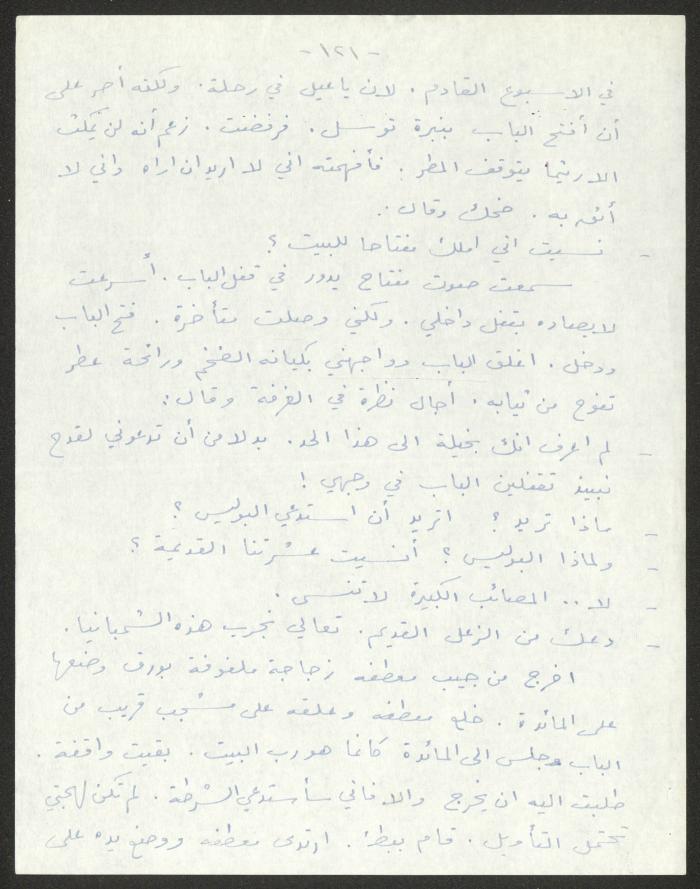 - ١٢١ -
في الاسبوع القادم . لان ياعيل في رحلة . ولكنه أصر على
أن أفتح الباب بنبرة توسل . فرفضت . زعم أنه لن يمكث
الا ريثما يتوقف المطر . فأفهمته اني لا اريد ان اراه واني لا
أثق به . ضحك وقال :
- نسيت اني املك مفتاحا للبيت ؟
سمعت صوت مفتاح يدور في قفل الباب . أسرعت
لايصاده بقفل داخلي . ولكني وصلت متأخرة . فتح الباب
ودخل . اغلق الباب وواجهني بكيانه الضخم ورائحة عطر
تفوح من ثيابه . أجال نظرة في الغرفة وقال :
- لم اعرف انك بخيلة الى هذا الحد . بدلا من أن تدعوني لقدح
نبيذ تقفلين الباب في وجهي !
- ماذا تريد ؟ اتريد أن استدعي البوليس ؟
- ولماذا البوليس ؟ أنسيت عشرتنا القديمة ؟
- لا .. المصائب الكبيرة لا تنسى .
- دعك من الزعل القديم . تعالي نجرب هذه الشمبانيا .
اخرج من جيب معطفه زجاجة ملفوفة بورق وضعها
على المائدة . خلع معطفه وعلقه على مشجب قريب من
الباب وجلس الى المائدة كانما هو رب البيت . بقيت واقفة .
طلبت اليه ان يخرج والا فاني سأستدعي الشرطة . لم تكن لهجتي
تحتمل التأويل . قام ببطء . ارتدى معطفه ووضع يده على